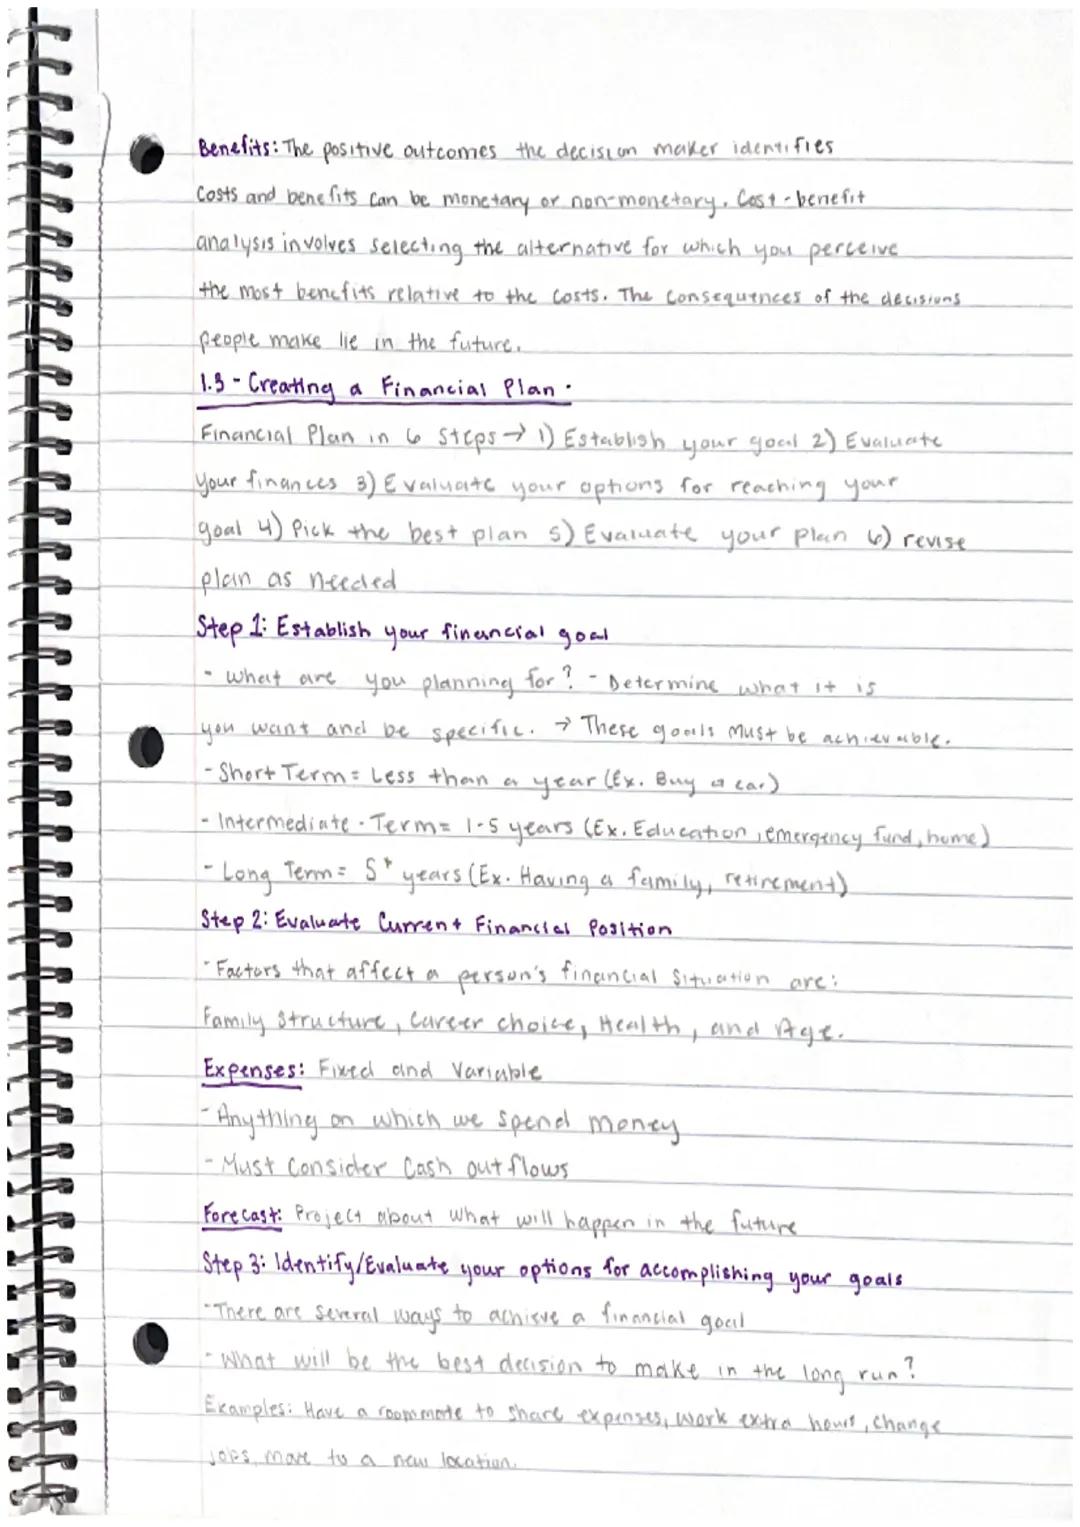 Benefits: The positive outcomes the decision maker identifies
Costs and benefits can be monetary or non-monetary. Cost-benefit
analysis involves selecting the alternative for which you perceive
the most benefits relative to the costs. The consequences of the decisions
people make lie in the future.
1.3 - Creating a Financial Plan.
Financial Plan in 6 steps → 1) Establish your goal 2) Evaluate
your finances 3) Evaluate your options for reaching your
goal 4) Pick the best plan 5) Evaluate your plan 6) revise
plan as needed
Step 1: Establish your financial goal
- What are you planning for? - Determine what it is
you want and be specific. → These goals must be achievable.
- Short Term = Less than a year (Ex. Buy a car)
- Intermediate-Term = 1-5 years (Ex. Education, emergency fund, home)
- Long Term = 5+ years (Ex. Having a family, retirement)
Step 2: Evaluate Current Financial Position
- Factors that affect a person's financial situation are:
Family structure, Career choice, Health, and Age.
Expenses: Fixed and Variable
- Anything on which we spend money
- Must Consider Cash outflows
Forecast: Project about what will happen in the future
Step 3: Identify/Evaluate your options for accomplishing your goals
- There are several ways to achieve a financial goal
- What will be the best decision to make in the long run?
Examples: Have a roommate to share expenses, work extra hours, change
jobs, move to a new location.